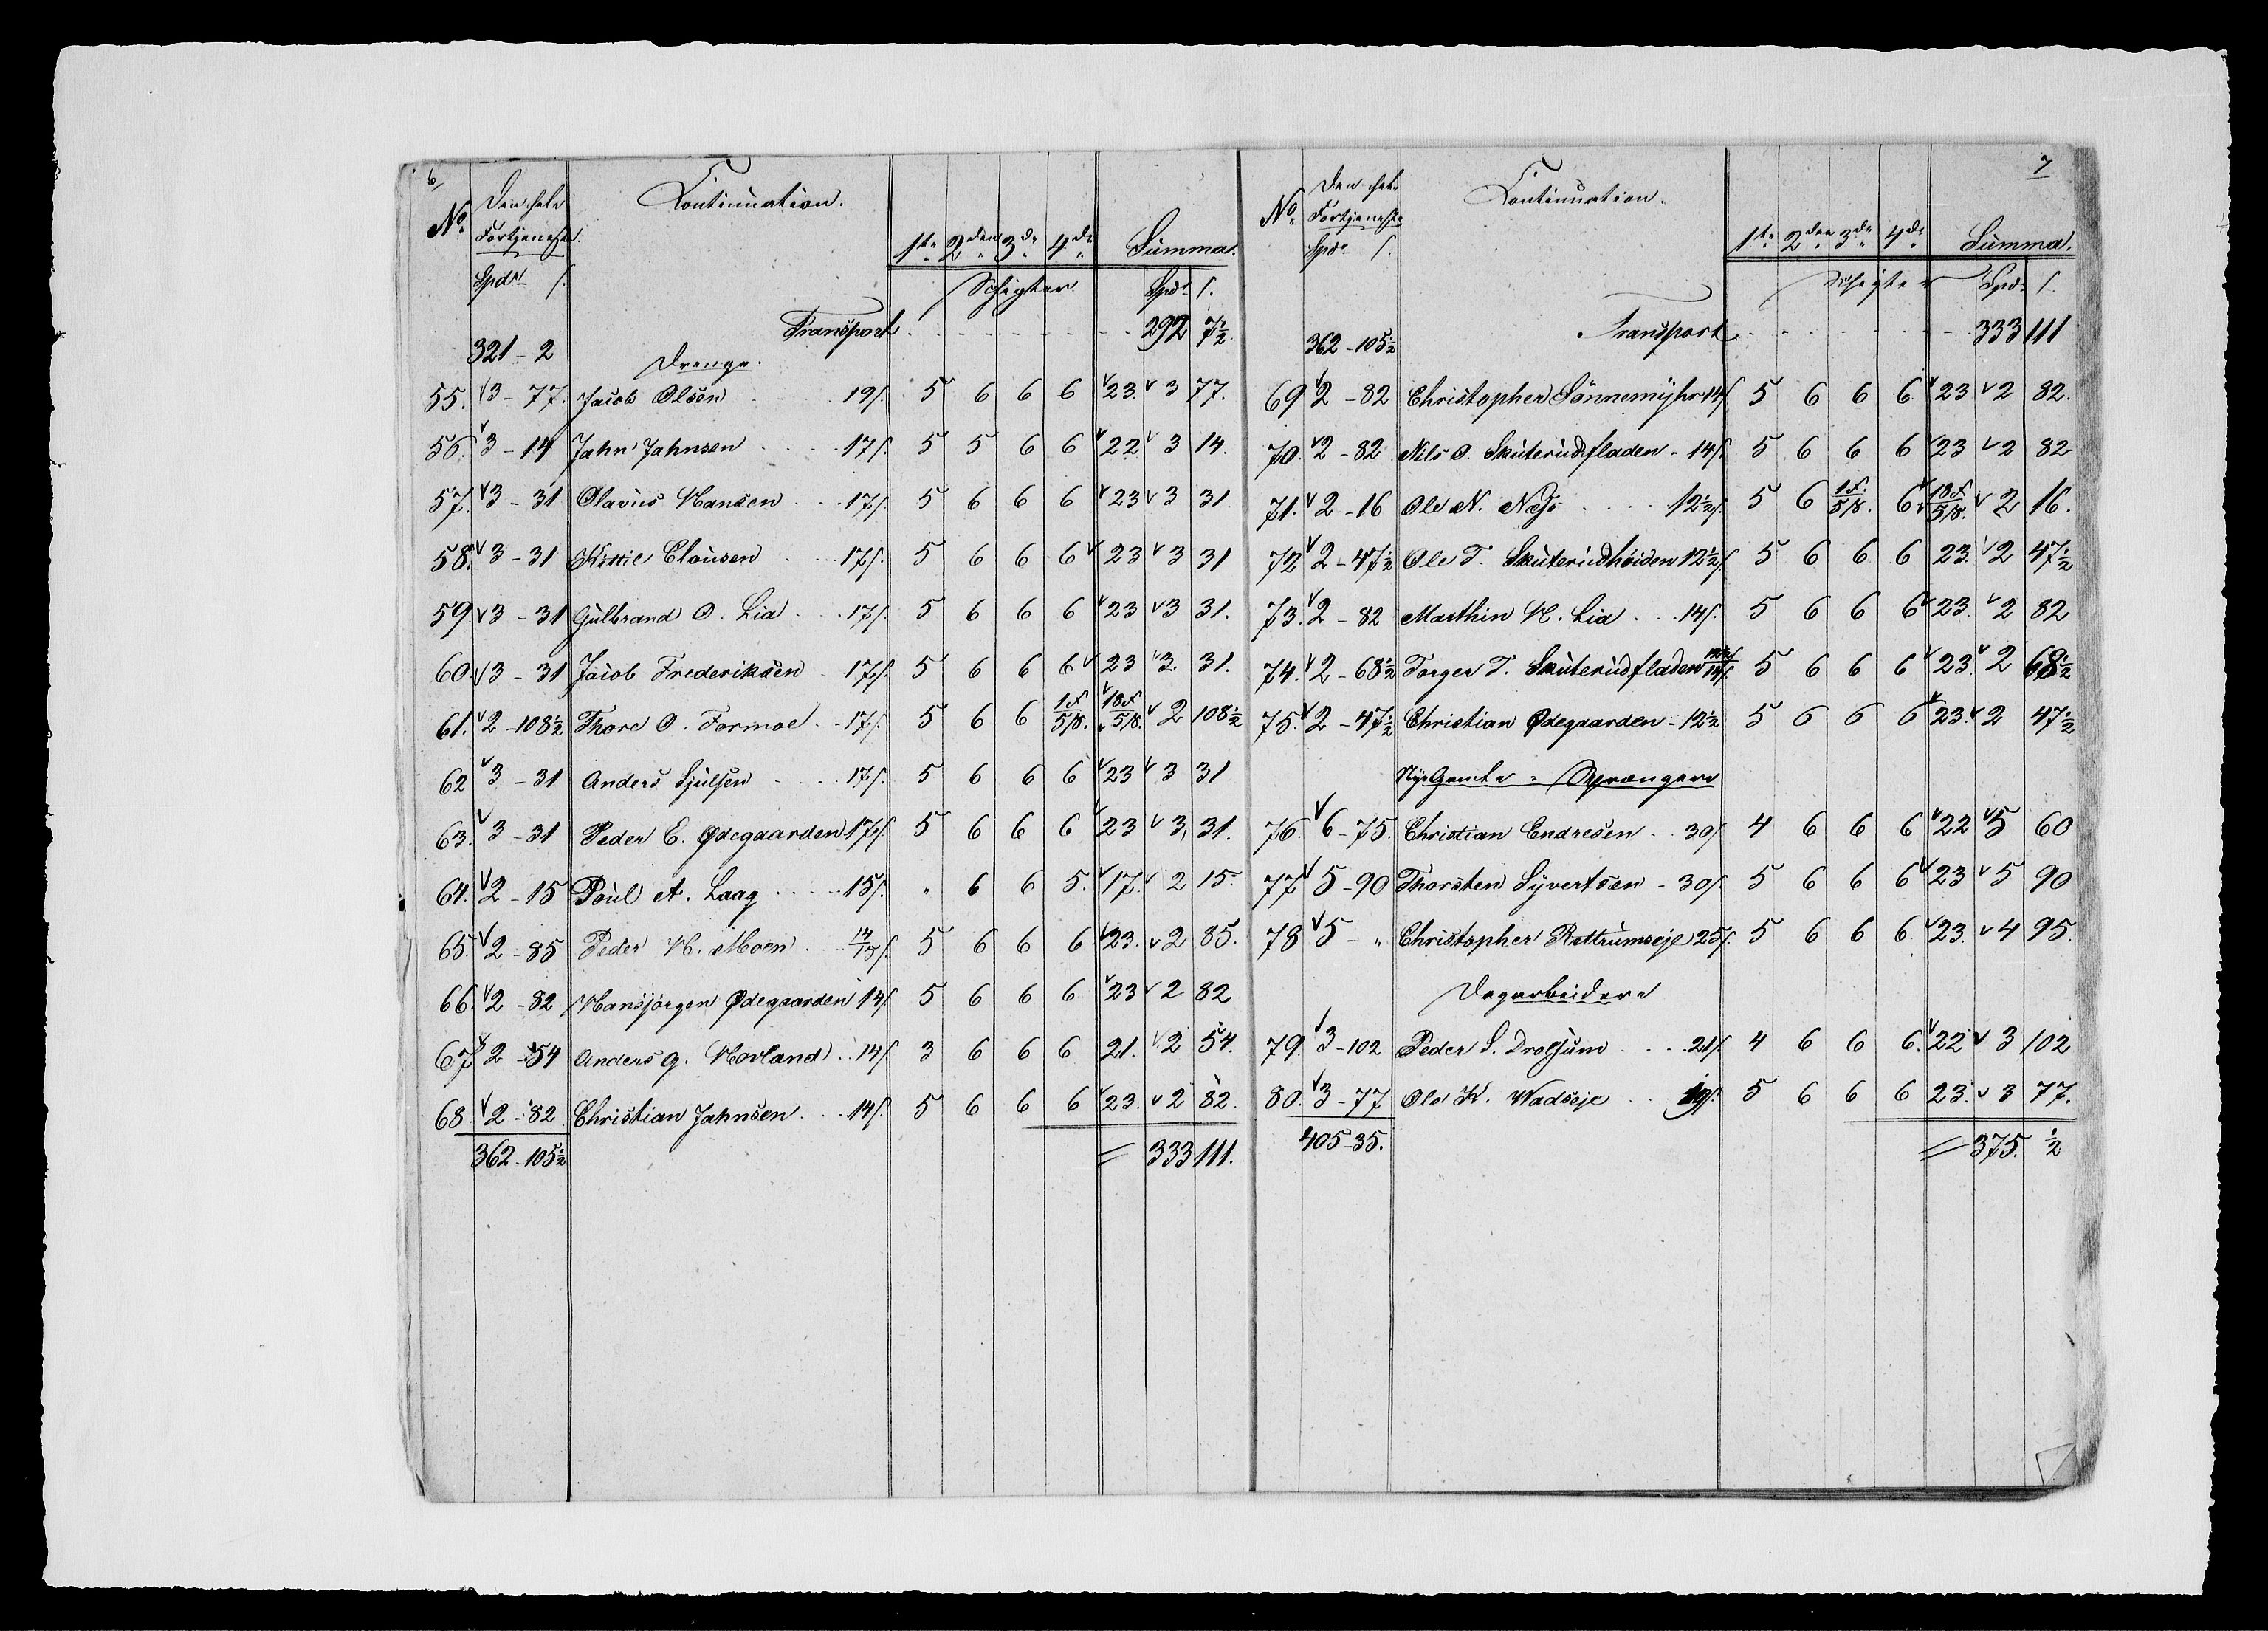 6/
No. Den hele Fortjeneste. Continuation. 1ste 2den 3de 4de Summa.
Spdr. s. Schigter Spdr. s.
Transport . . . . . . . 292 7½
321 - 2 Drenge.
55. 3 - 77. Jacob Olsen . . 19s. 5 6 6 6 23. 3 77.
56. 3 - 14 Jahn Jahnsen . . . . 17s. 5 5 6 6 22 3 14.
57. 3 - 31 Olavus Hansen . . . 17s. 5 6 6 6 23 3 31
58. 3 - 31 Kittil Clausen . . . 17s. 5 6 6 6 23 3 31
59 3 - 31 Gulbrand O. Lia . . . 17s. 5 6 6 6 23 3 31.
60 3 - 31 Jacob Frederiksen . 17s. 5 6 6 6 23 3. 31.
61. 2 - 108½ Thore O. Formoe . . 17s. 5 6 6 1F 5/8. 18F 5/8. 2 108½
62 3 - 31 Anders Sjulsen . . . . 17s. 5 6 6 6 23 3 31
63. 3 - 31 Peder E. Ødegaarden 17s. 5 6 6 6 23 3, 31.
64. 2 - 15 Poul A. Laag . . . . . 15s. " 6 6 5. 17. 2 15
65. 2 - 85 Peder H. Moen . . 14/15s. 5 6 6 6 23. 2 85.
66. 2 - 82 Hansjørgen Ødegaarden 14s. 5 6 6 6 23 2 82
67 2 - 54 Anders G. Hovland . . 14s. 3 6 6 6 21. 2 54.
68. 2 - 82 Christian Jahnsen . . . 14s. 5 6 6 6 23. 2 82.
362 - 105½ = 333 111.
7
No. Den hele Fortjeneste Continuation. 1ste 2den 3de 4de Summa.
Spdr. s. Schigter Spdr. s.
Transport . . . . . . . 333 111
362 - 105½
69 2 - 82 Christopher Sønnemyhr 14s. 5 6 6 6 23 2 82.
70. 2 - 82 Nils O. Skuterudfladen - 14s. 5 6 6 6 23 2 82
71. 2 - 16 Ole N. Næss . . . . 12½s. 5 6 1F. 5/8. 6 18F 5/8. 2 16.
72 2 - 47½ Ole T. Skuterudhøiden 12½s. 5 6 6 6 23. 2 47½
73. 2 - 82 Marthin H. Lia . . . 14s. 5 6 6 6 23. 2 82
74. 2 - 68½ Torger T. Skuterudfladen 5 6 6 6 23. 2 68½
75. 2 - 47½ Christian Ødegaarden - 12½ 5 6 6 6 23. 2 47½
Nye Gamle - Sprængere
76. 6 - 75. Christian Endresen . . 30s. 4 6 6 6 22 5 60
77 5 - 90 Thorsten Syvertsen - 30s. 5 6 6 6 23 5 90
78 5 - " Christopher Rettrumseje 25s. 5 6 6 6 23. 4 95.
Dagarbeidere
79. 3 - 102 Peder S. Drolsum . . . . 21s. 4 6 6 6. 22 3 102
80. 3 - 77 Ole K. Wadseje . . 19s. 5 6 6 6 23. 3 77.
405 - 35. = 375. ½